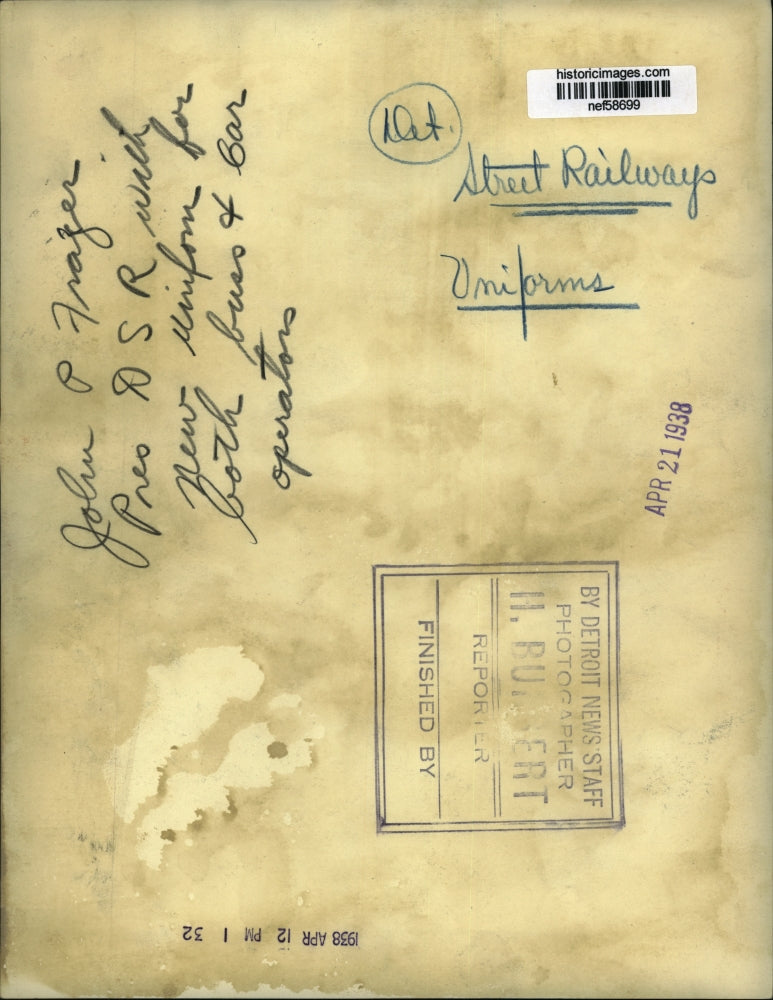 historicimages.com
nef58699
Det.
Street Railways
Uniforms
John P Frazer
Pres DSR with
new uniform for
both buss & car
operators
APR 21 1938
BY DETROIT NEWS STAFF
PHOTOGRAPHER
H.
REPORTER
FINISHED BY
1938 APR 12 PM 1 32